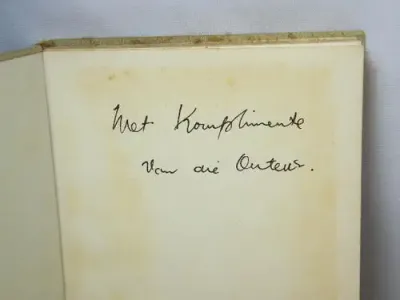 Met Komplimente
Van die Outeur.